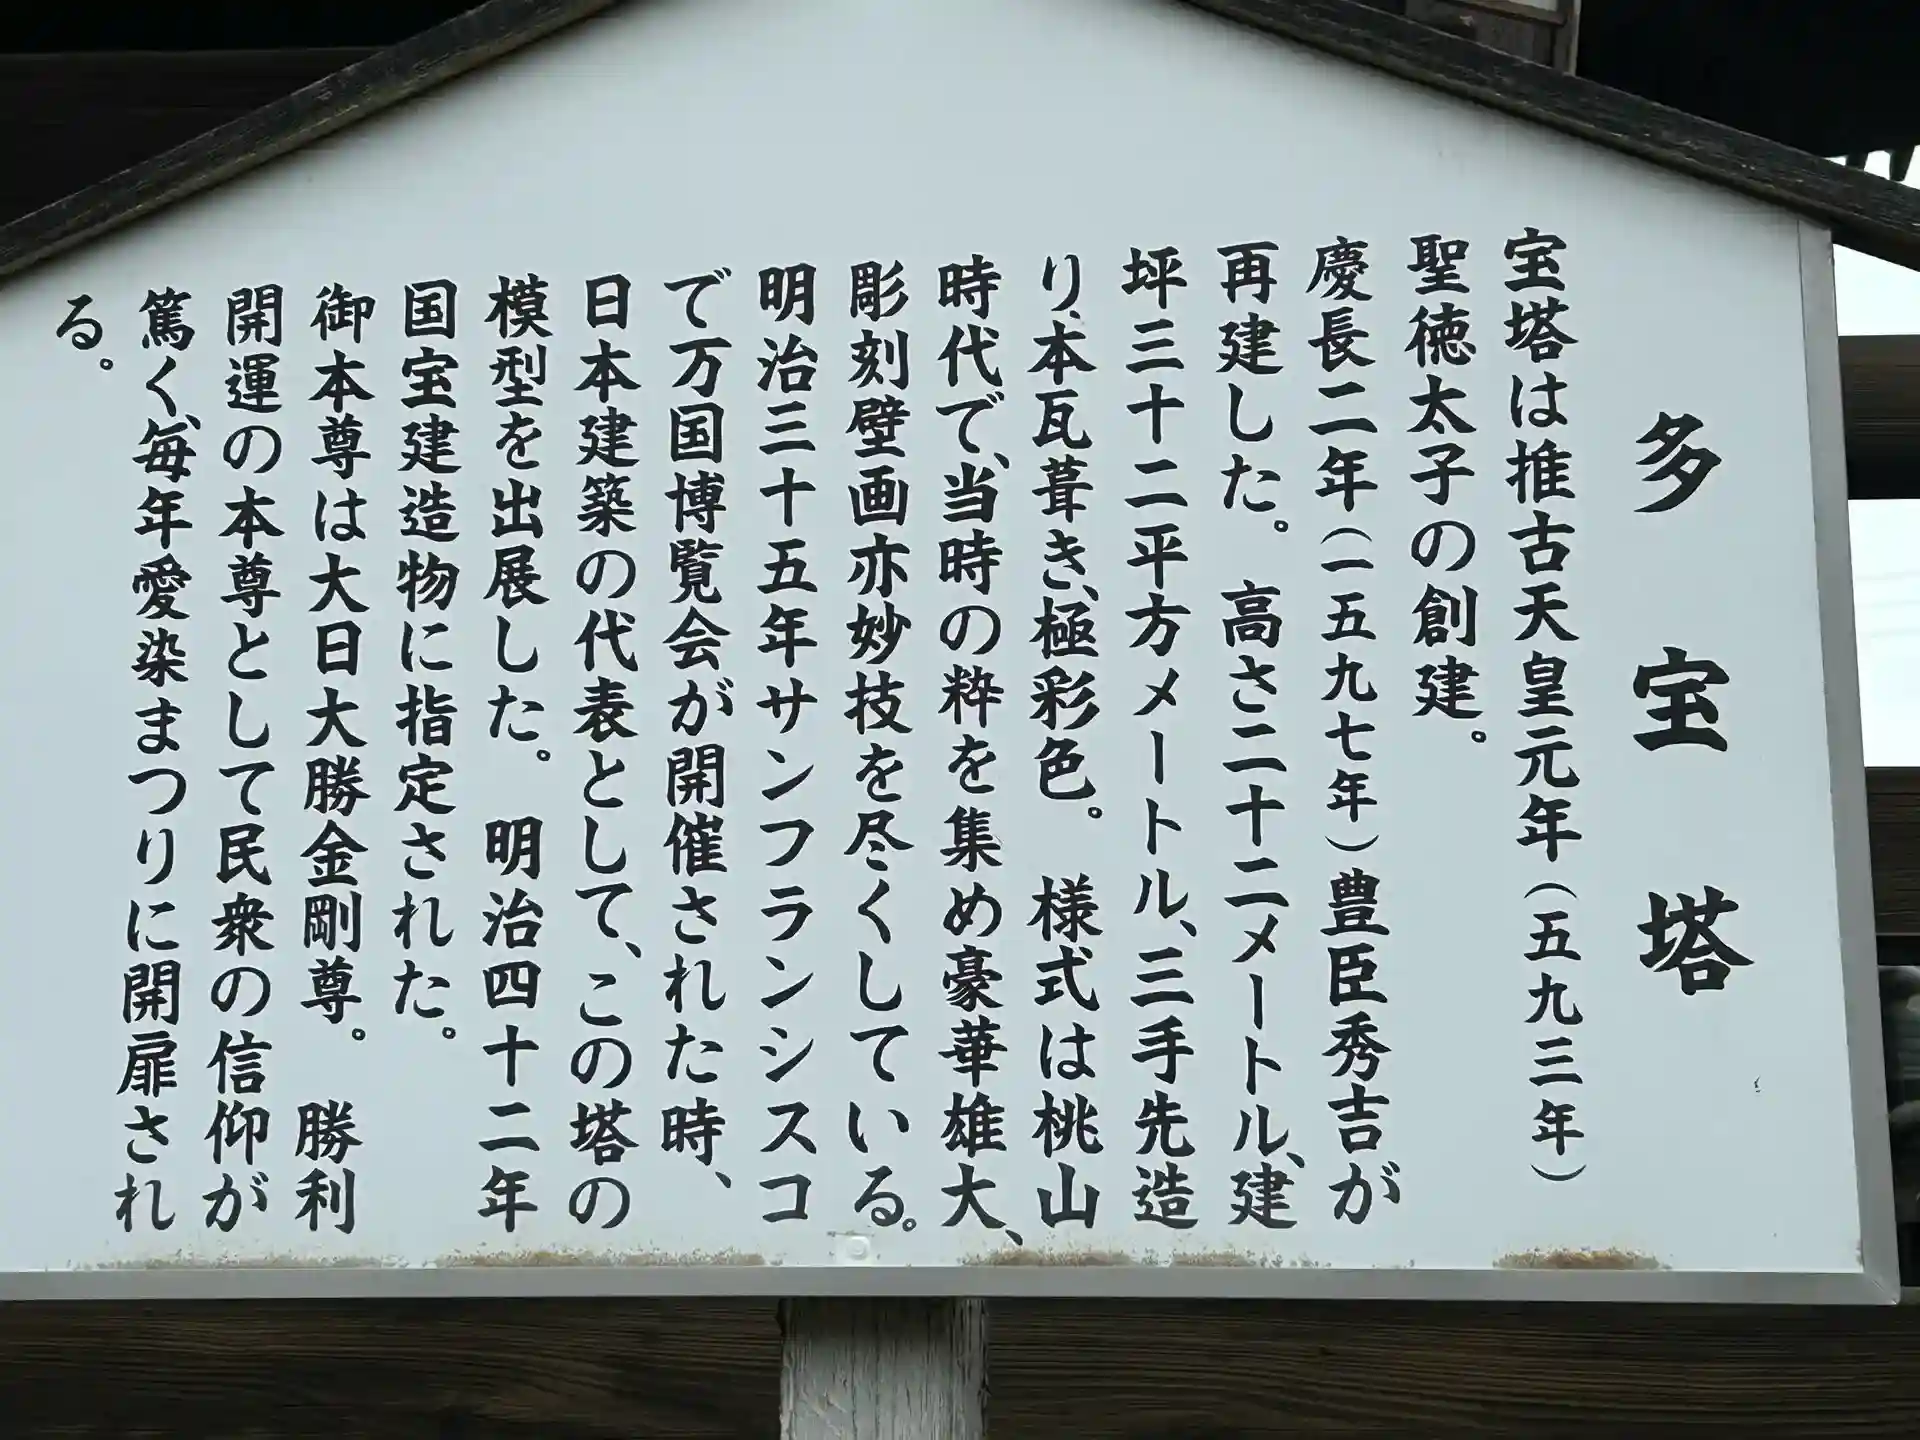 多宝塔
宝塔は推古天皇元年（五九三年）
聖徳太子の創建。
慶長二年（一五九七年）豊臣秀吉が
再建した。　高さ二十二メートル、建
坪三十二平方メートル、三手先造
り、本瓦葺き、極彩色。　様式は桃山
時代で、当時の粋を集め豪華雄大、
彫刻壁画亦妙技を尽くしている。
明治三十五年サンフランシスコ
で万国博覧会が開催された時、
日本建築の代表として、この塔の
模型を出展した。　明治四十二年
国宝建造物に指定された。
御本尊は大日大勝金剛尊。　勝利
開運の本尊として民衆の信仰が
篤く、毎年愛染まつりに開扉され
る。